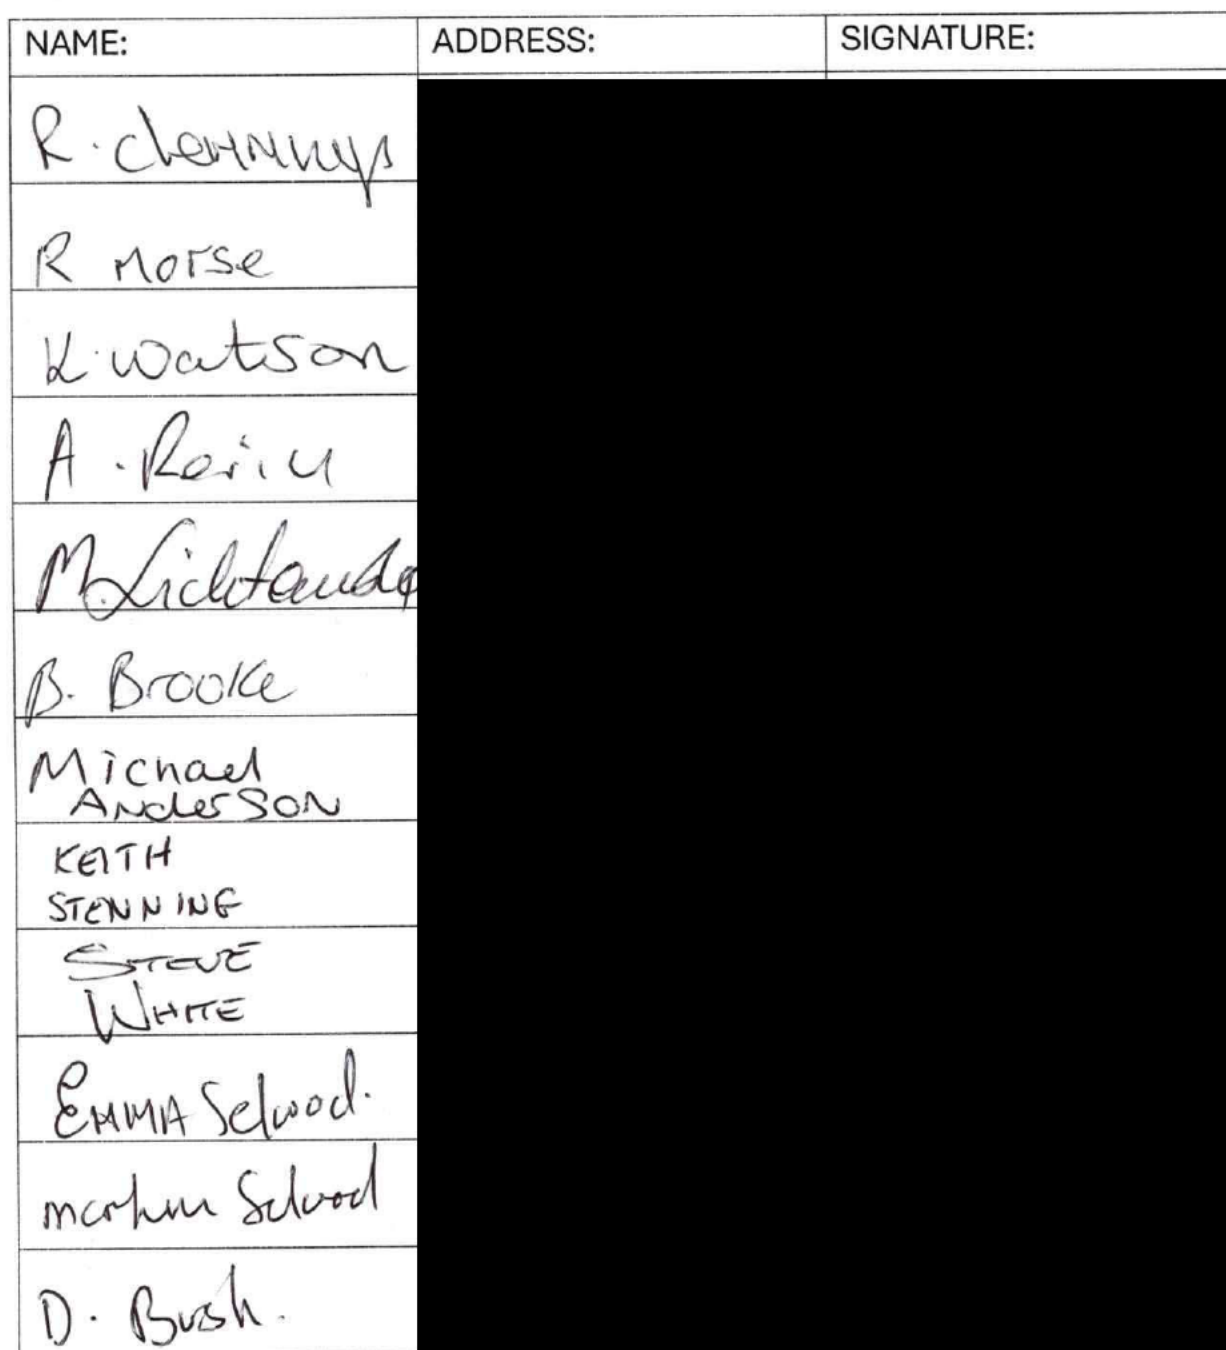 NAME: ADDRESS: SIGNATURE:
R.
R Morse
K. Watson
A.
M.
B. Brooke
Michael
Anderson
KEITH
STENNING
STEVE
WHITE
EMMA Selwood.
Martin Selwood
D. Bush.